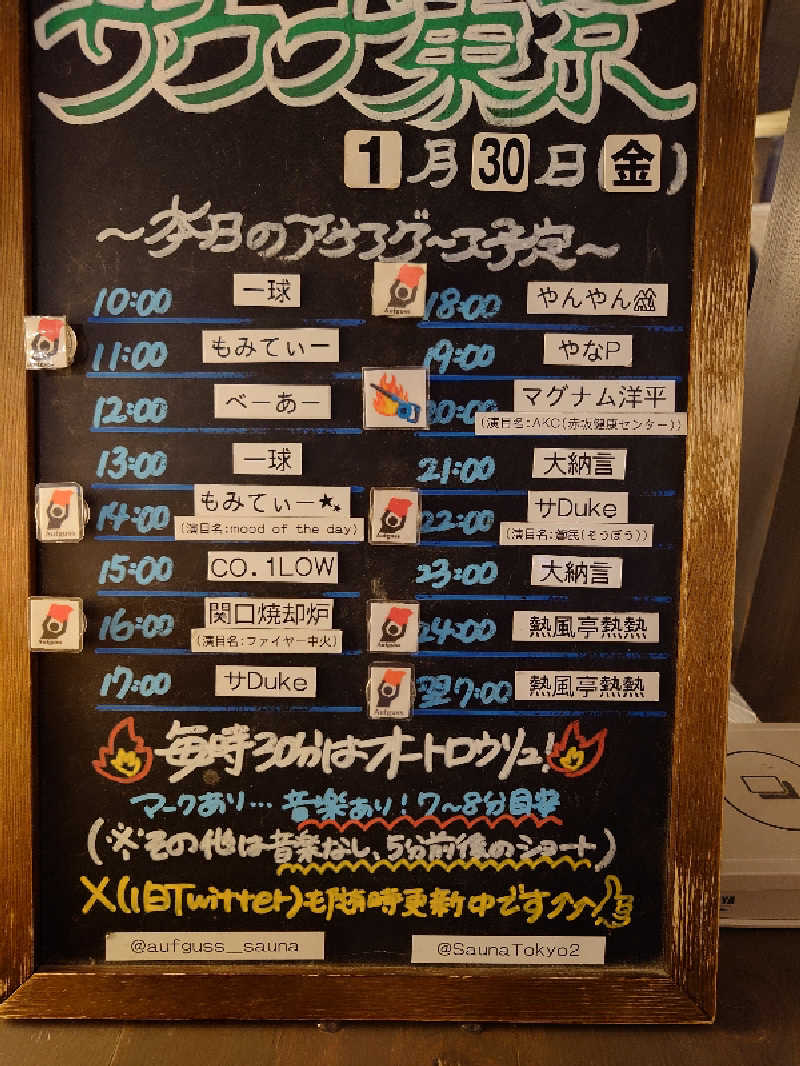 サウナ東京
1月30日(金)
~本日のアウフグース予定~
10:00 一球
11:00 もみてぃー
12:00 べーあー
13:00 一球
14:00 もみてぃー★
(演目名:mood of the day)
15:00 CO.1LOW
16:00 関口焼却炉
(演目名:ファイヤー中火)
17:00 サDuke
18:00 やんやん
19:00 やなP
20:00 マグナム洋平
(演目名:AKC(赤坂健康センター))
21:00 大納言
22:00 サDuke
(演目名:蒼氓(そうぼう))
23:00 大納言
24:00 熱風亭熱熱
翌7:00 熱風亭熱熱
Aufguss
Aufguss
Aufguss
Aufguss
Aufguss
Aufguss
Aufguss
毎時30分はオートロウリュ!
マークあり…音楽あり!7~8分目安
(※その他は音楽なし、5分前後のショート)
X(旧Twitter)も随時更新中です
@aufguss__sauna
@SaunaTokyo2